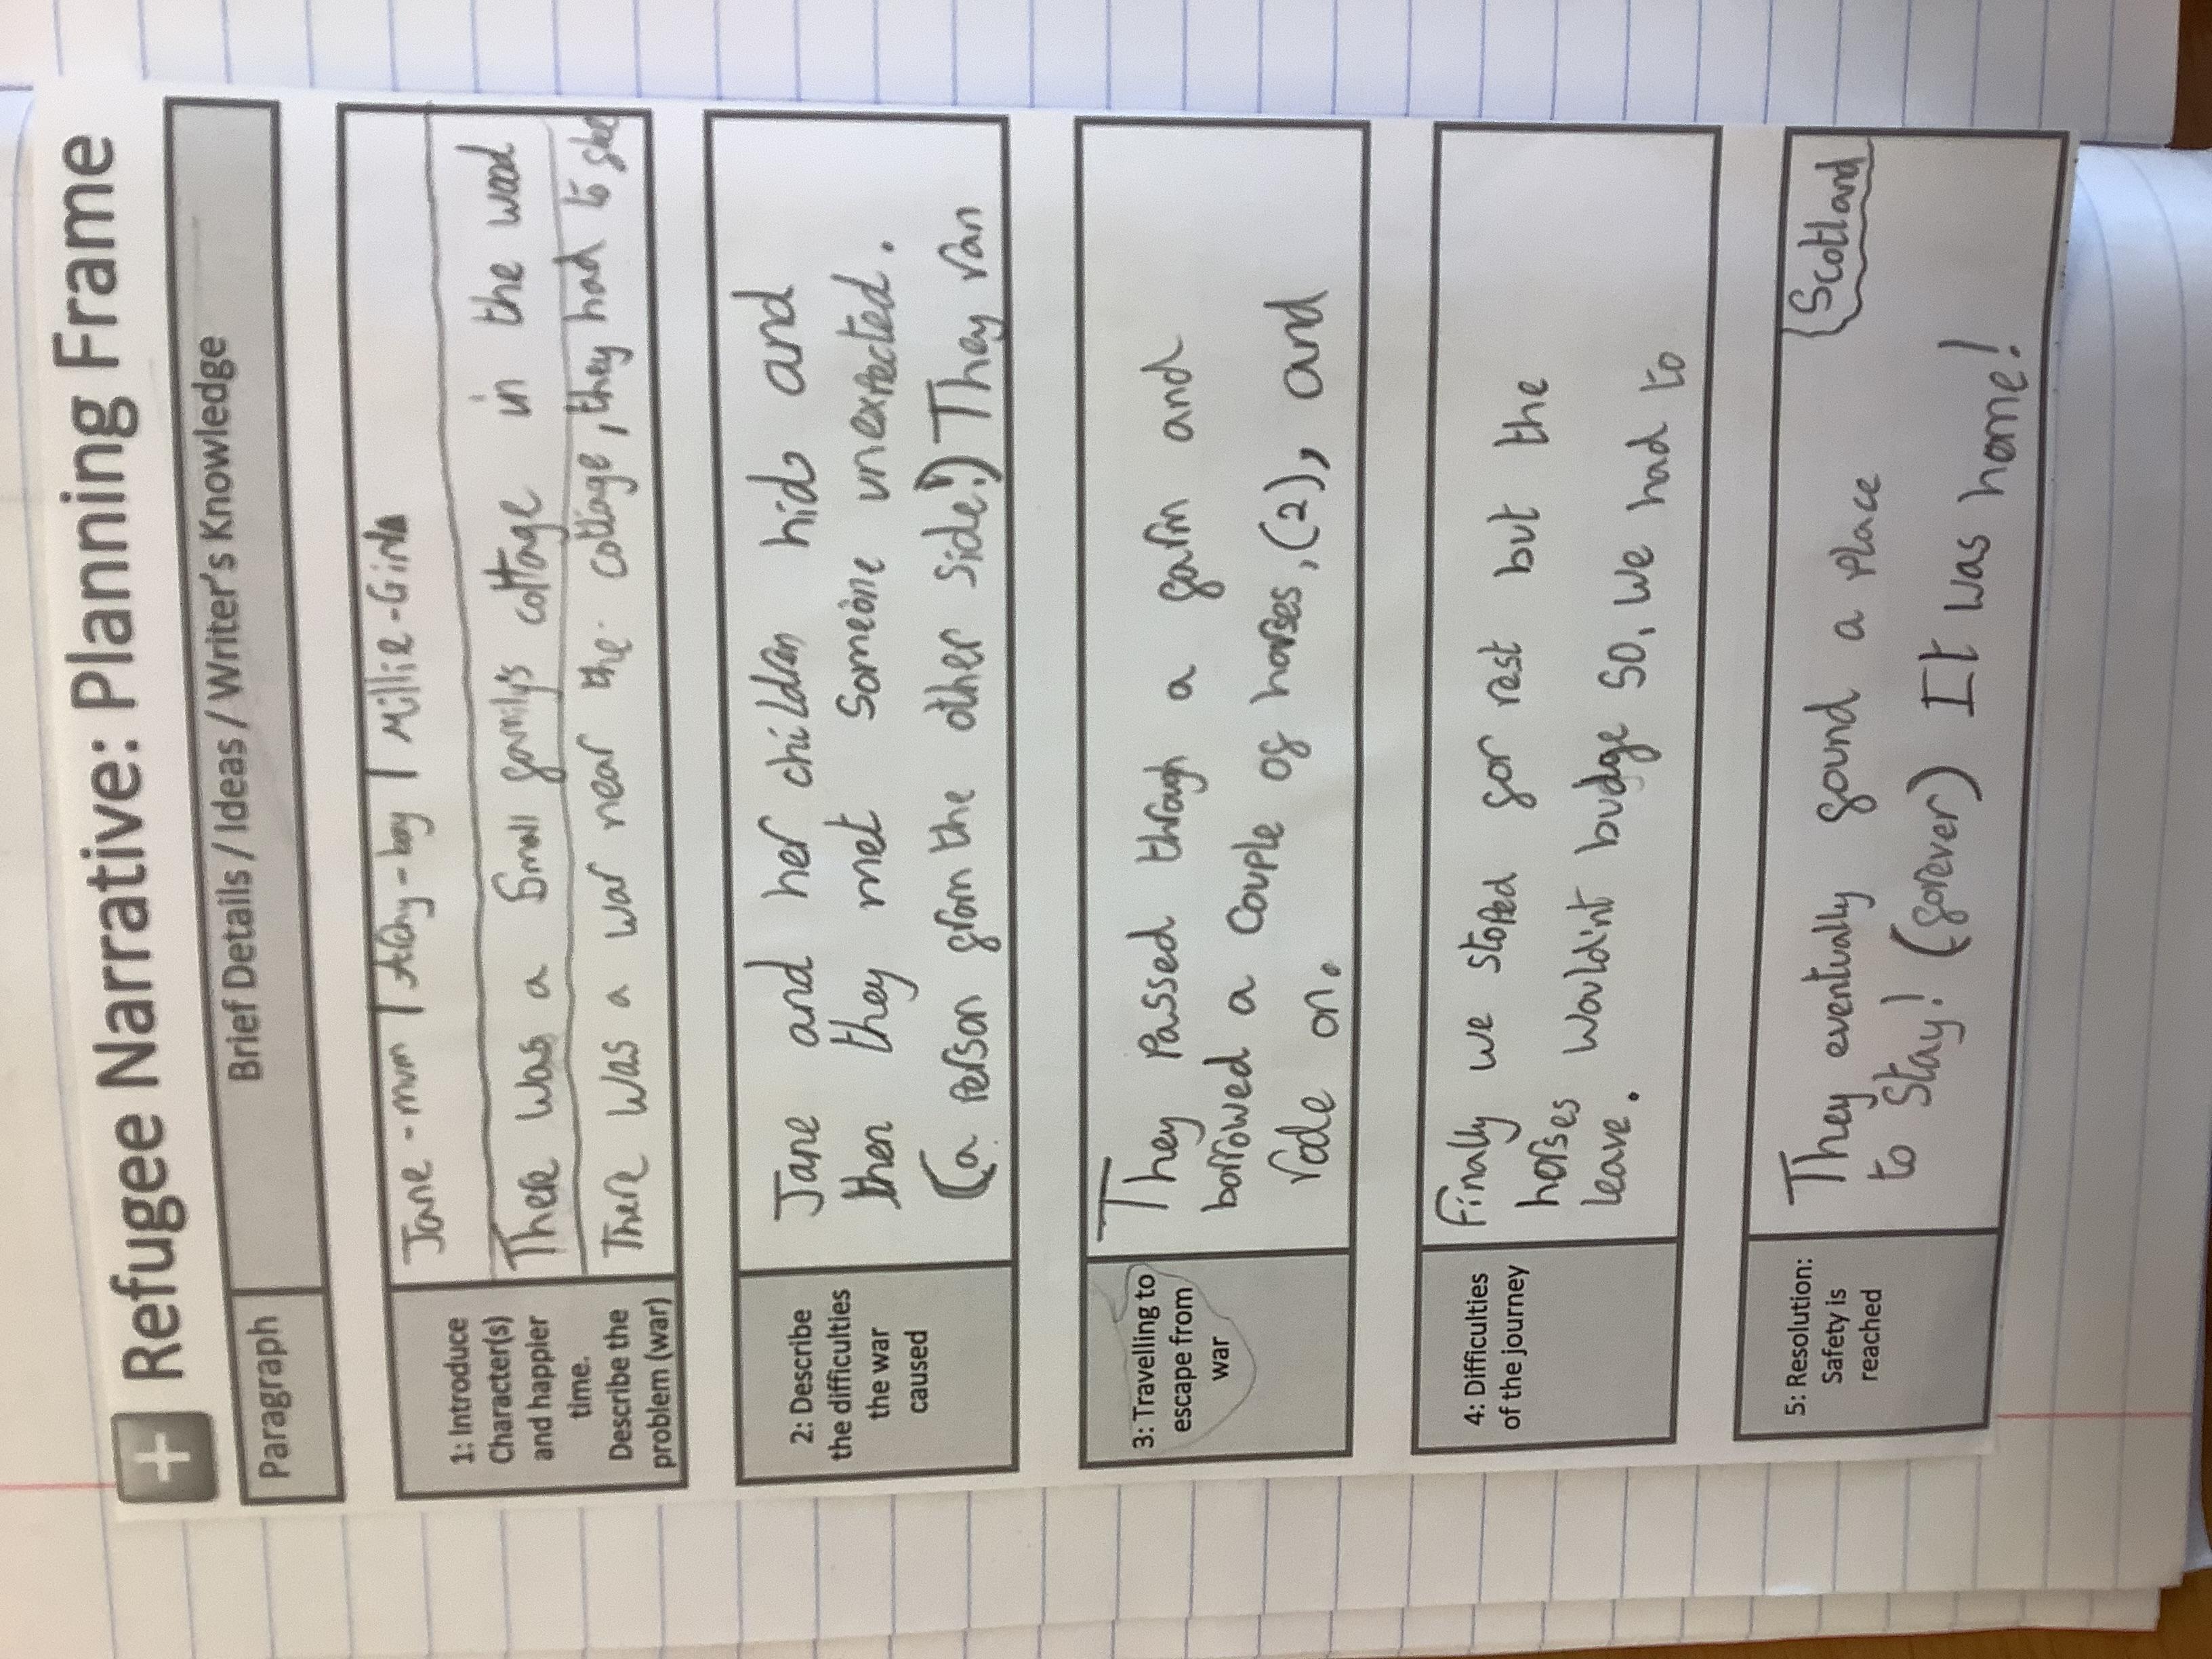 Refugee Narrative: Planning Frame
Paragraph
Brief Details / Ideas / Writer's Knowledge
1: Introduce
Character(s)
and happier
time.
Describe the
problem (war)
Jane - mum | | Millie-Girl
There was a Small family's cottage in the wood
There was a war near the cottage, they had to
2: Describe
the difficulties
the war
caused
Jane and her children hid and
then they met someone unexpected.
(a person from the other side!) They ran
3: Travelling to
escape from
war
They Passed through a farm and
borrowed a couple of horses, (2), and
rode on.
4: Difficulties
of the journey
Finally we stoped for rest but the
horses would'nt budge so, we had to
leave.
5: Resolution:
Safety is
reached
Scotland
They eventually found a place
to stay! (forever) It was home!